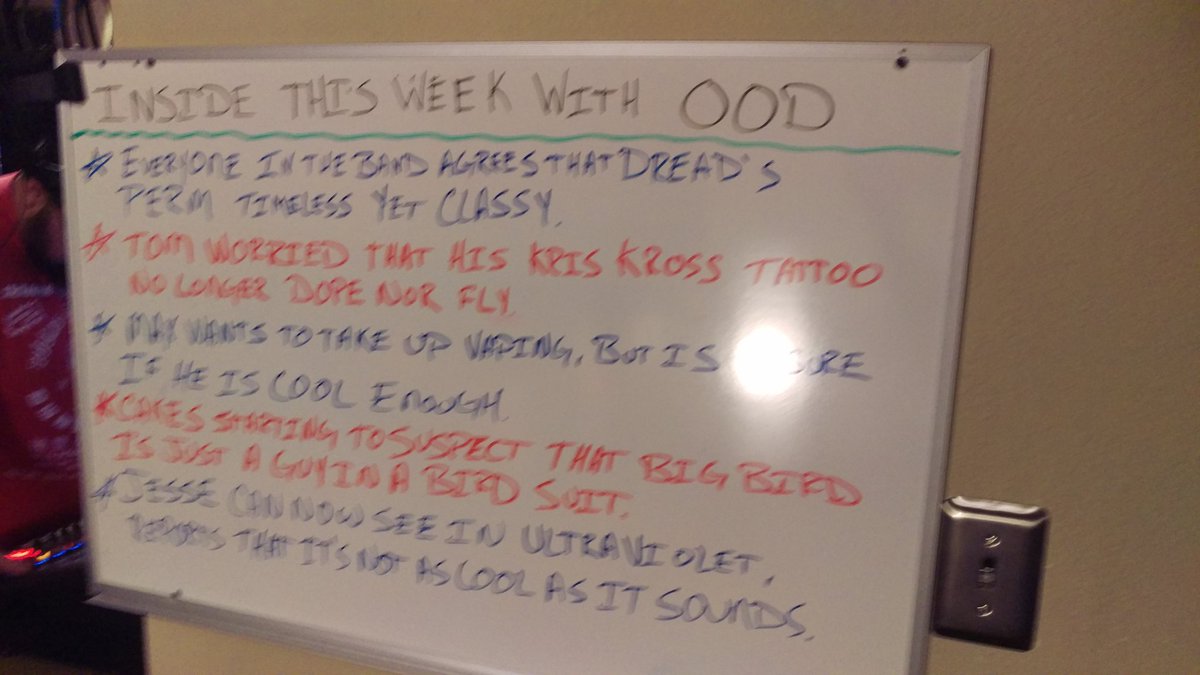 INSIDE THIS WEEK WITH OOD
* EVERYONE IN THE BAND AGREES THAT DREAD'S
PERM TIMELESS YET CLASSY.
* TOM WORRIED THAT HIS KRIS KROSS TATTOO
NO LONGER DOPE NOR FLY.
* MAX WANTS TO TAKE UP VAPING, BUT IS
IF HE IS COOL ENOUGH.
* CAKES STARTING TO SUSPECT THAT BIG BIRD
IS JUST A GUY IN A BIRD SUIT.
* JESSE CAN NOW SEE IN ULTRAVIOLET,
REPORTS THAT IT'S NOT AS COOL AS IT SOUNDS.